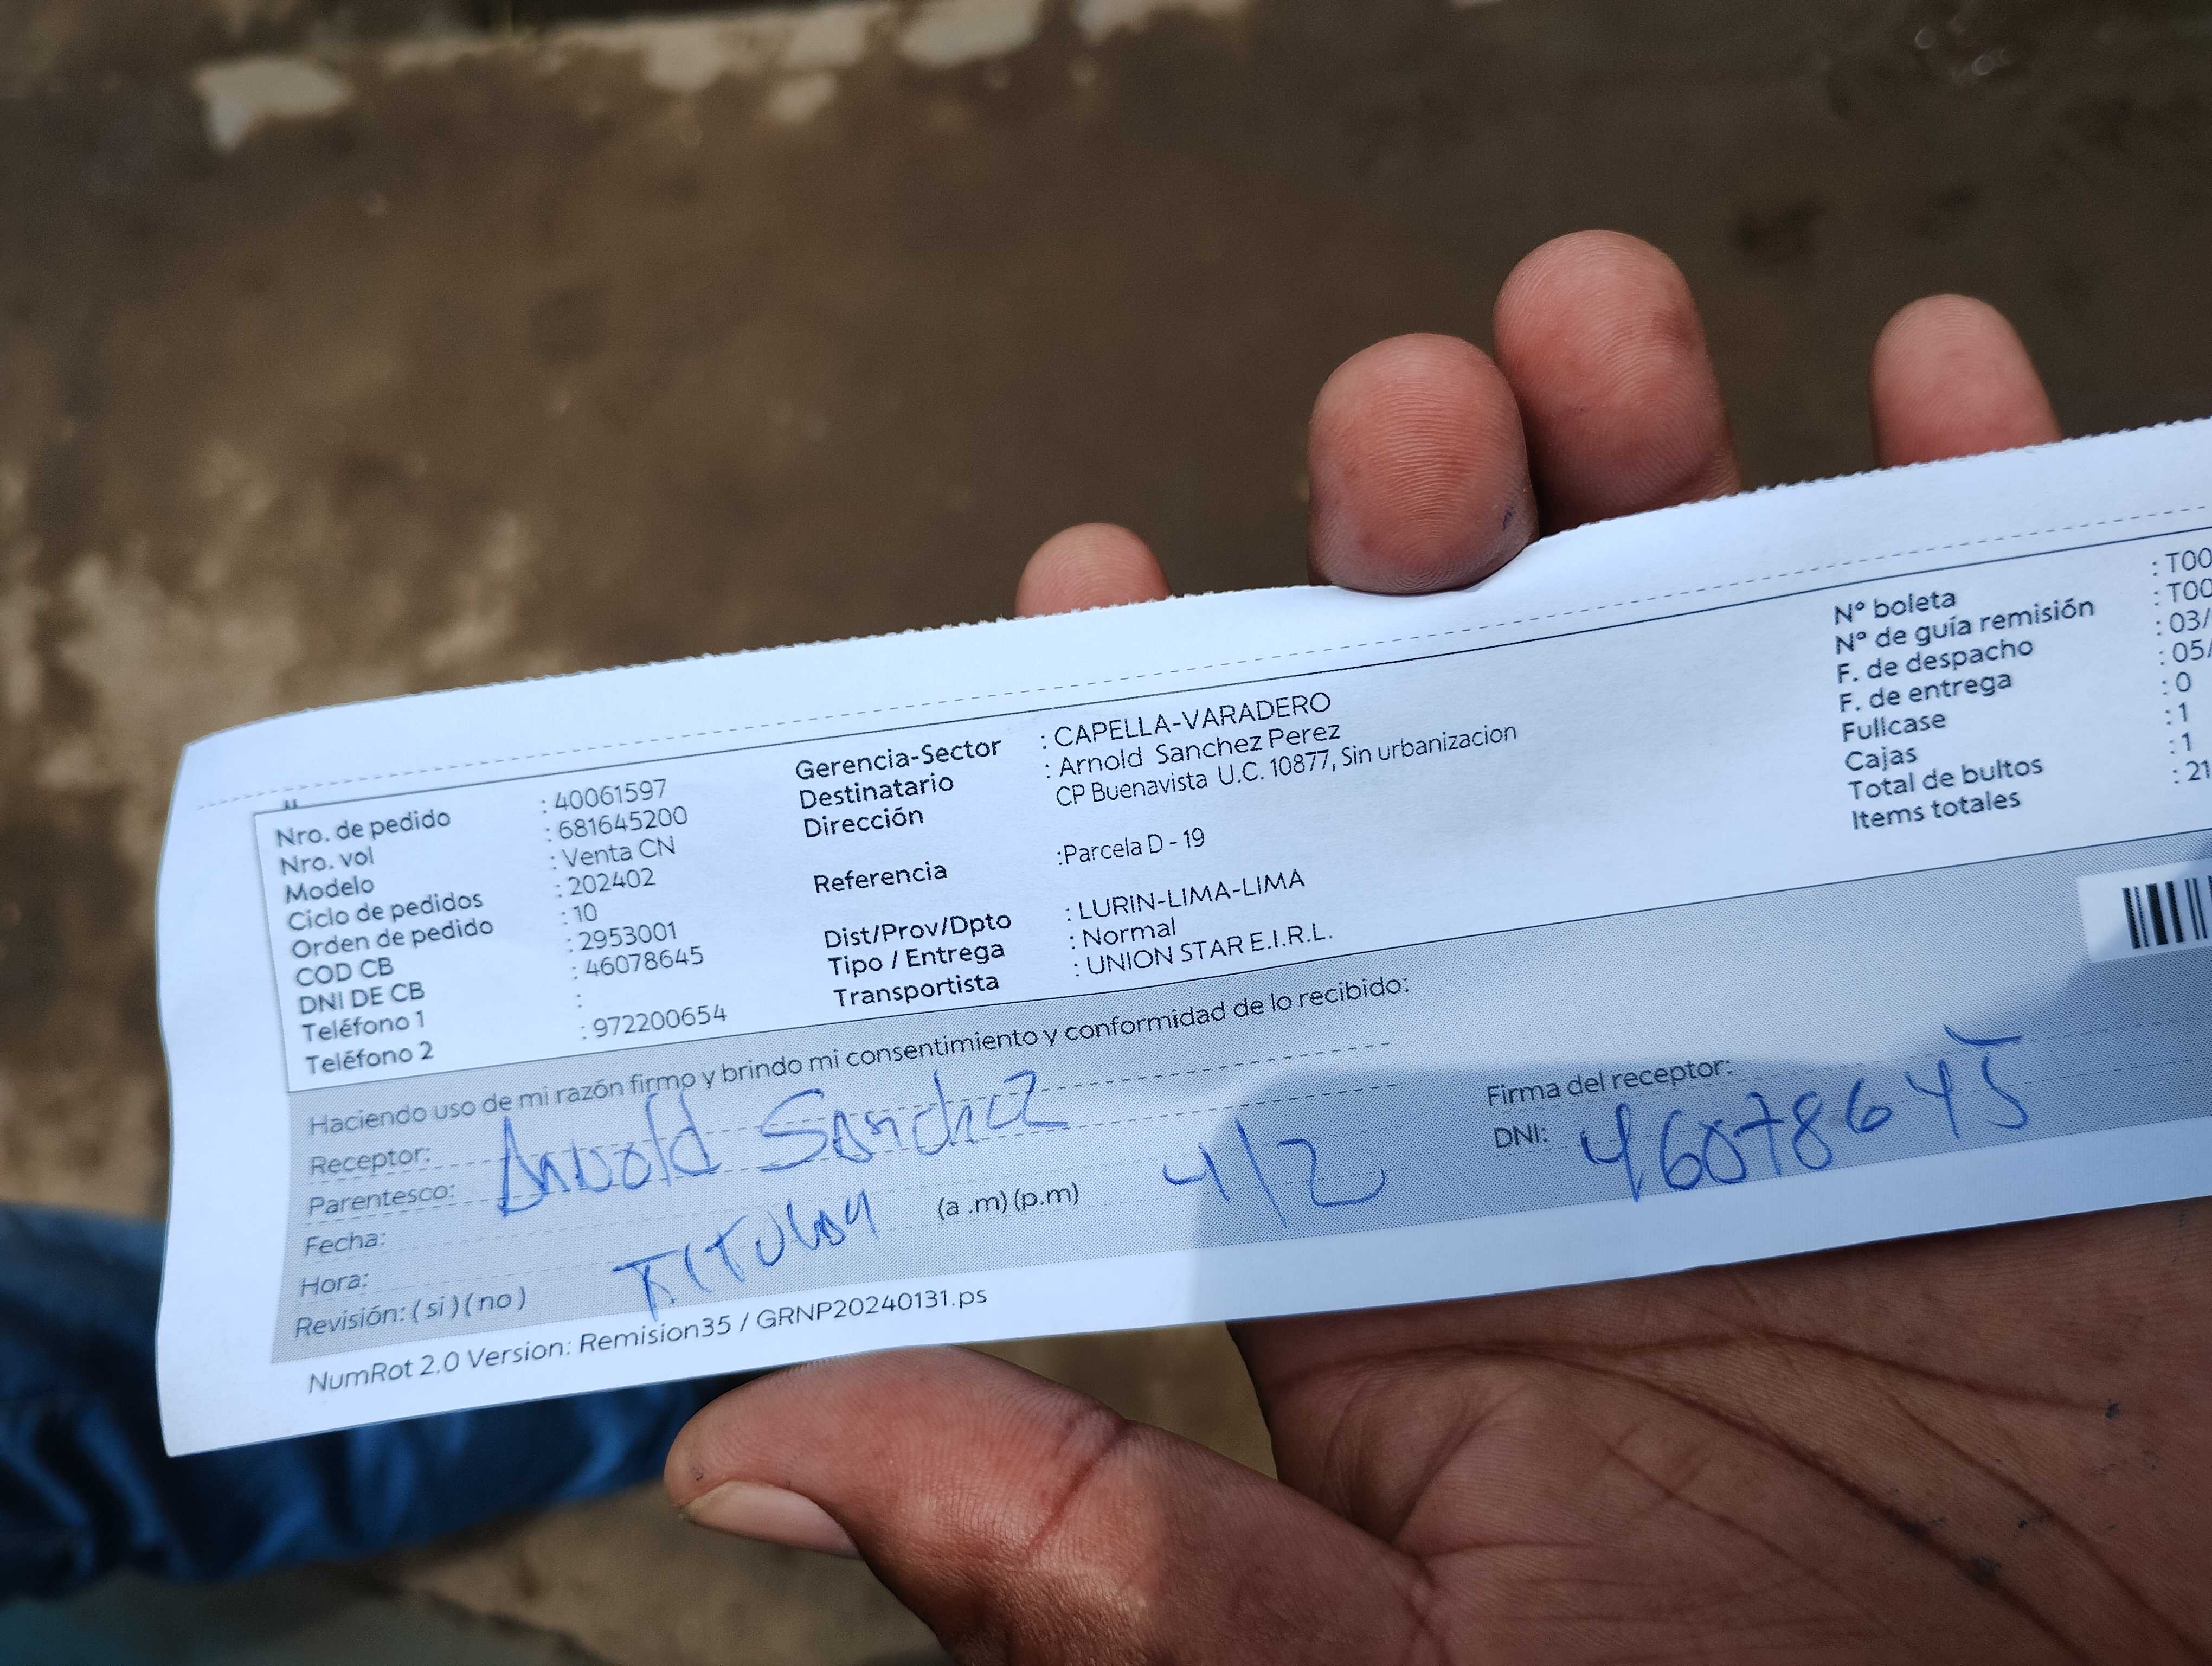 Nro. de pedido : 40061597
Nro. vol : 681645200
Modelo : Venta CN
Ciclo de pedidos : 202402
Orden de pedido : 10
COD CB : 2953001
DNI DE CB : 46078645
Teléfono 1 :
Teléfono 2 : 972200654
Gerencia-Sector : CAPELLA-VARADERO
Destinatario : Arnold Sanchez Perez
Dirección CP Buenavista U.C. 10877, Sin urbanizacion
Referencia :Parcela D - 19
Dist/Prov/Dpto : LURIN-LIMA-LIMA
Tipo / Entrega : Normal
Transportista : UNION STAR E.I.R.L.
Nº boleta : T00
Nº de guía remisión : T00
F. de despacho : 03/
F. de entrega : 05/
Fullcase : 0
Cajas : 1
Total de bultos : 1
Items totales : 21
Haciendo uso de mi razón firmo y brindo mi consentimiento y conformidad de lo recibido:
Receptor: Arnold Sanchez
Parentesco:
Fecha:
Hora: TITULAR (a .m) (p.m) 4/2
Revisión: ( si ) ( no )
Firma del receptor:
DNI: 46078645
NumRot 2.0 Version: Remision35 / GRNP20240131.ps